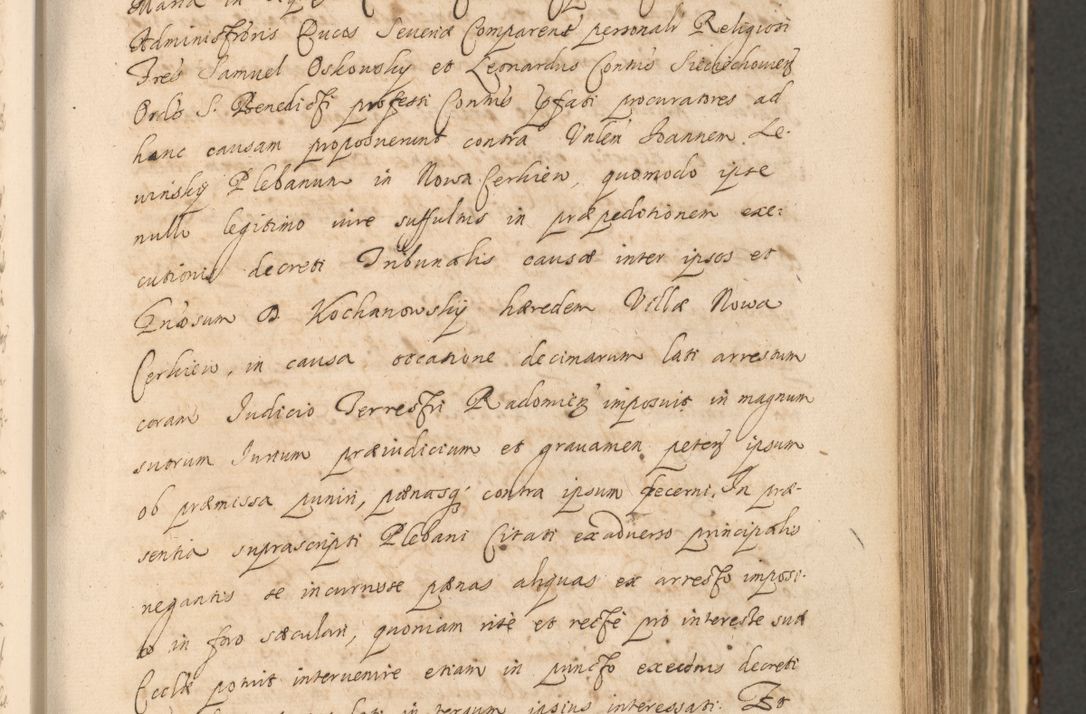 Maria in
Administroris Ducos Severiæ Comparent personalr Religiosi
Fres Samuel Oskowsky et Leonardus Contus Siechechowień
Ordis S. Benedicti professi Contus ipsati procuratores ad
hanc causam proposuerunt contra Vnlem Ioannem Le-
winsky Plebanum in Nowa Cerkiew, quomodo ipse
nullo legitimo iure suffultus in præpeditionem exe:
cutionis decreti Tribunalis causæ inter ipsos et
Gnosum D Kochanowsky hæredem Villæ Nowa
Cerkiew, in causa occasione decimarum lati arrestum
coram Iudicio Terrestri Radomień imposuit in magnum
suorum Iurium præiudicium et gravamen peteń ipsum
ob præmissa puniri, pænasq. contra ipsum decerni. In præ-
sentia suprascripti Plebani Citati exadverso principalis
negantis se incurrisse pænas aliquas ex arresto imposi-
to in foro sæculari, quoniam ritè et rectè pro interesse suæ
Ecclæ potuit intervenire etiam in puncto execonis decreti
lati in tergum ipsius interessati. Et